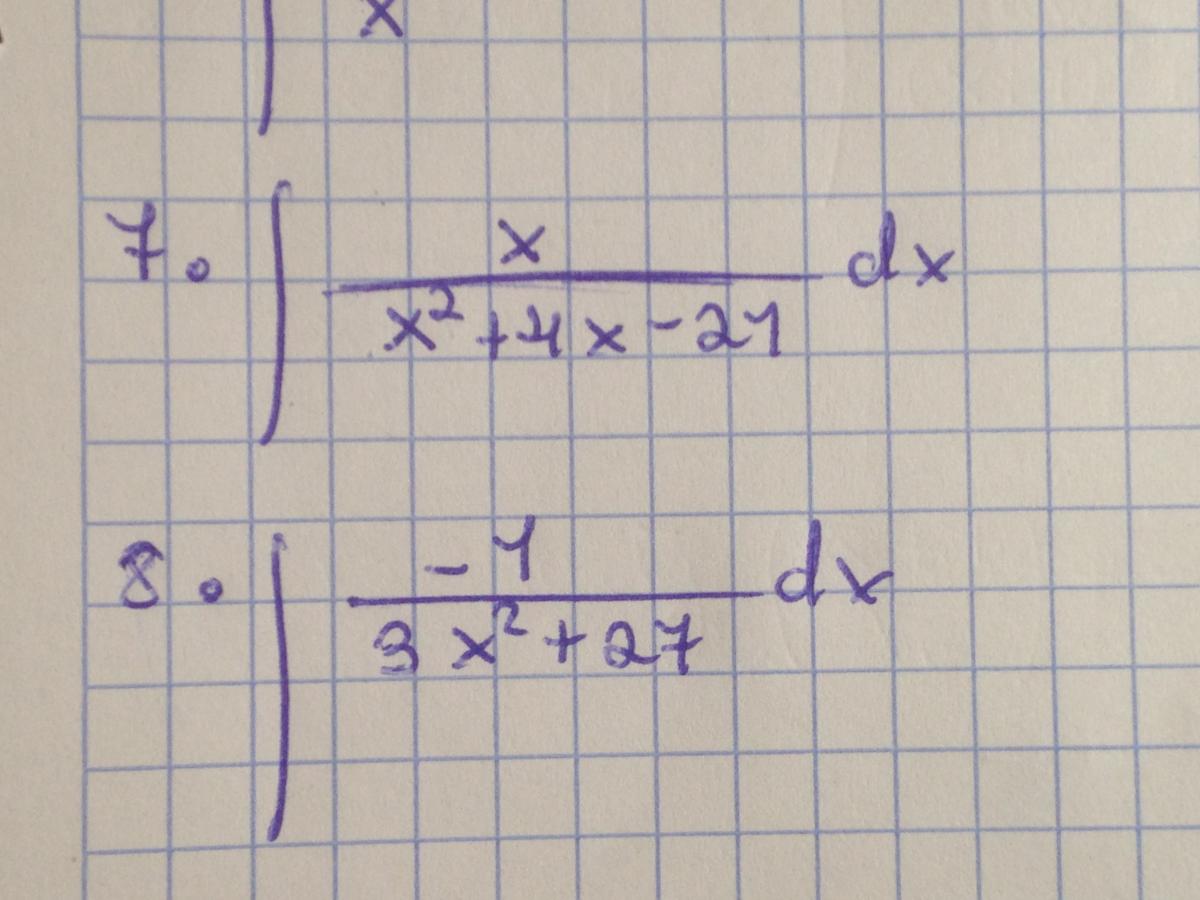 x
7. ∫ x / (x² + 4x - 21) dx
8. ∫ -1 / (3x² + 27) dx